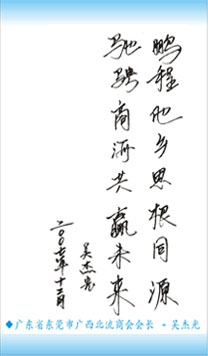 鹏程他乡思根同源
驰骋商海共赢未来
吴杰光
二〇〇七年十二月
◆广东省东莞市广西北流商会会长 - 吴杰光